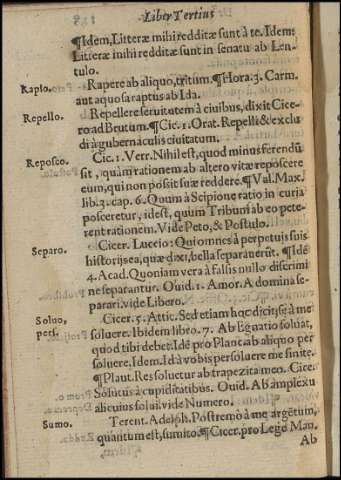 Liber Tertius
¶Idem, Litteræ mihi redditæ sunt à te. Idem:
Litteræ mihi redditæ sunt in senatu ab Len-
tulo.
Rapio. Rapere ab aliquo, tritum. ¶Hora. 3. Carm.
aut aquosa raptus ab Ida.
Repello. Repellere seruitutem à ciuibus, dixit Cice-
ro ad Brutum. ¶Cic. 1. Orat. Repelli & exclu
di à gubernaculis ciuitatum.
Reposco. Cic. 1. Verr. Nihil est, quod minus ferendũ
sit, quàm rationem ab altero vitæ reposcere
eum, qui non possit suæ reddere. ¶Val. Max.
lib. 3. cap. 6. Quum à Scipione ratio in curia
posceretur, id est, quum Tribuni ab eo pete-
rent rationem. Vide Peto, & Postulo.
Separo. Cicer. Lucceio: Qui omnes à perpetuis suis
historijs ea, quæ dixi, bella separauerũt. ¶Idẽ
4. Acad. Quoniam vera à falsis nullo discrimi
ne separantur. Ouid. 1. Amor. A domina se-
parari. vide Libero.
Soluo, Cicer. 5. Attic. Sed etiam hoc dicitis; è me
pers. soluere. Ibidem libro. 7. Ab Egnatio soluat,
quod tibi debet. Idẽ pro Planc. ab aliquo per
soluere. Idem. Id à vobis persoluere me sinite.
¶Plaut. Res soluetur ab trapezita meo. Cice.
Solutus à cupiditatibus. Ouid. Ab amplexu
alicuius solui. vide Numero.
Sumo. Terent. Adelph. Postremò à me argẽtum,
quantum est, sumito. ¶Cicer. pro Lege Man.
Ab